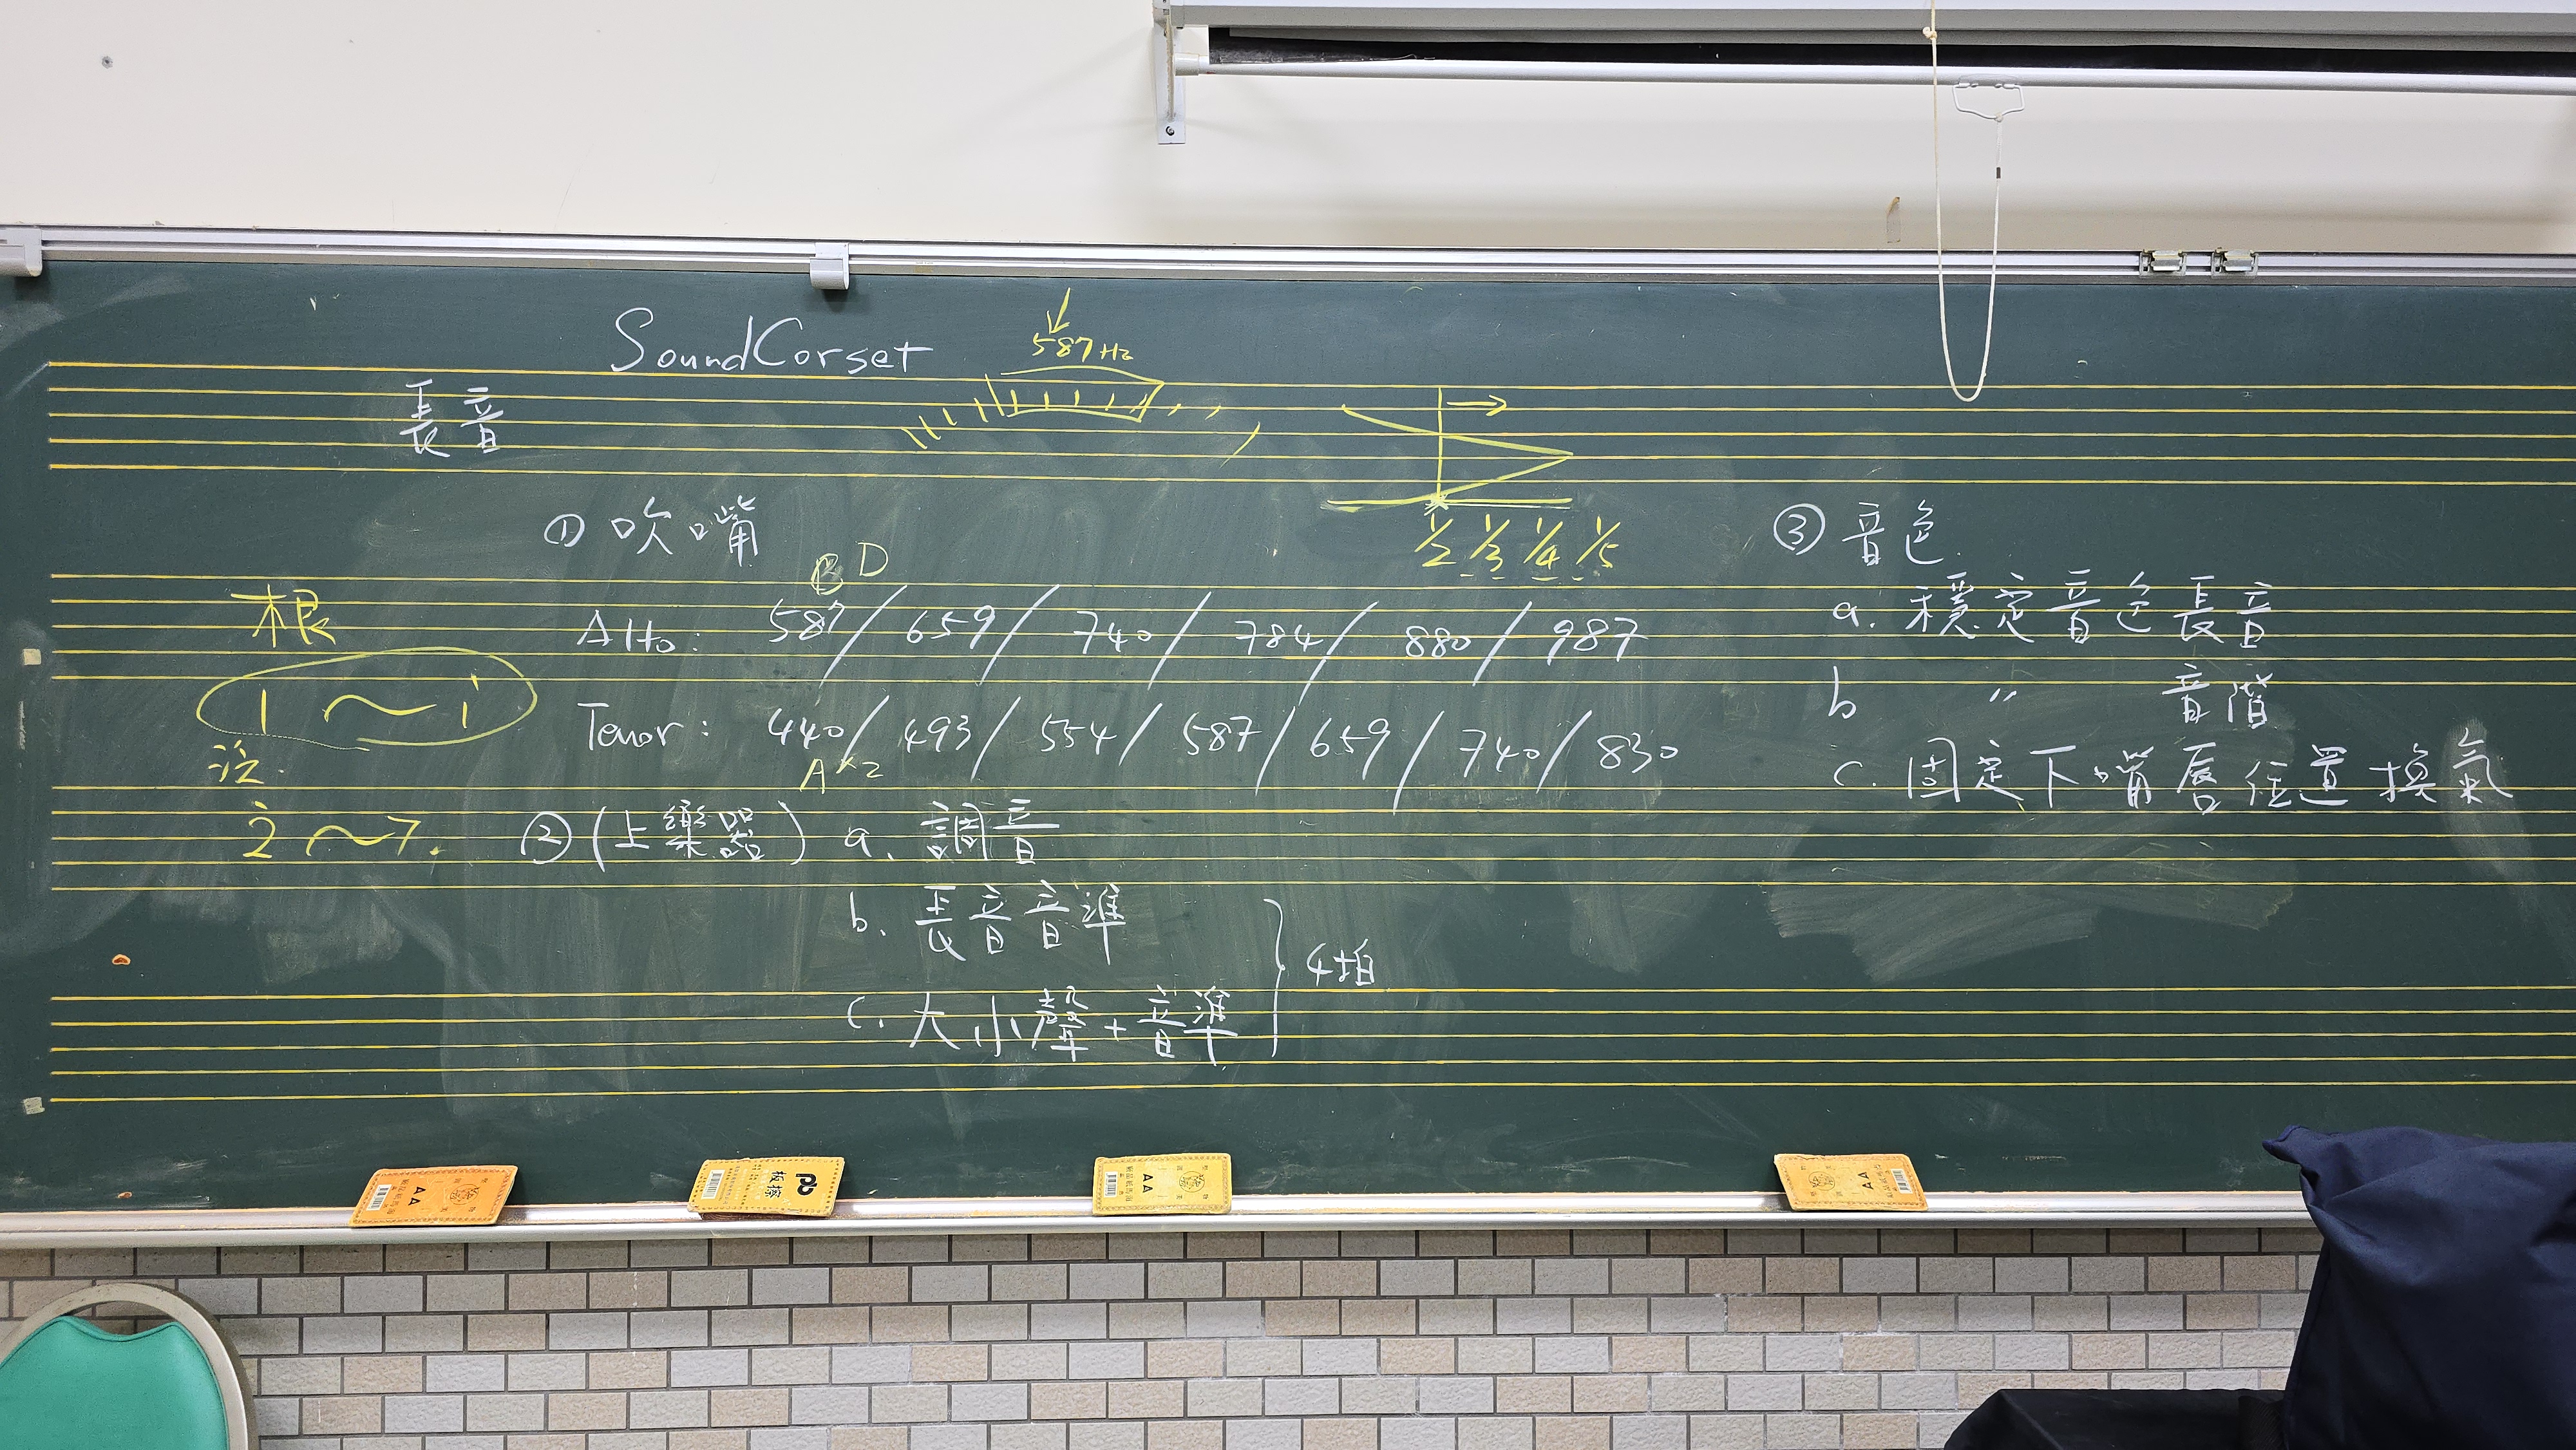 SoundCorset
587Hz
長音
① 吹嘴
1/2 1/3 1/4 1/5
B D
Alto: 587/659/740/784/880/987
Tenor: 440/493/554/587/659/740/830
A×2
根
1～i
泛.
2̇～7.
② (上樂器) a. 調音
b. 長音音準
c. 大小聲+音準
4拍
③ 音色
a. 穩定音色長音
b 〃 音階
c. 固定下嘴唇位置換氣
板擦